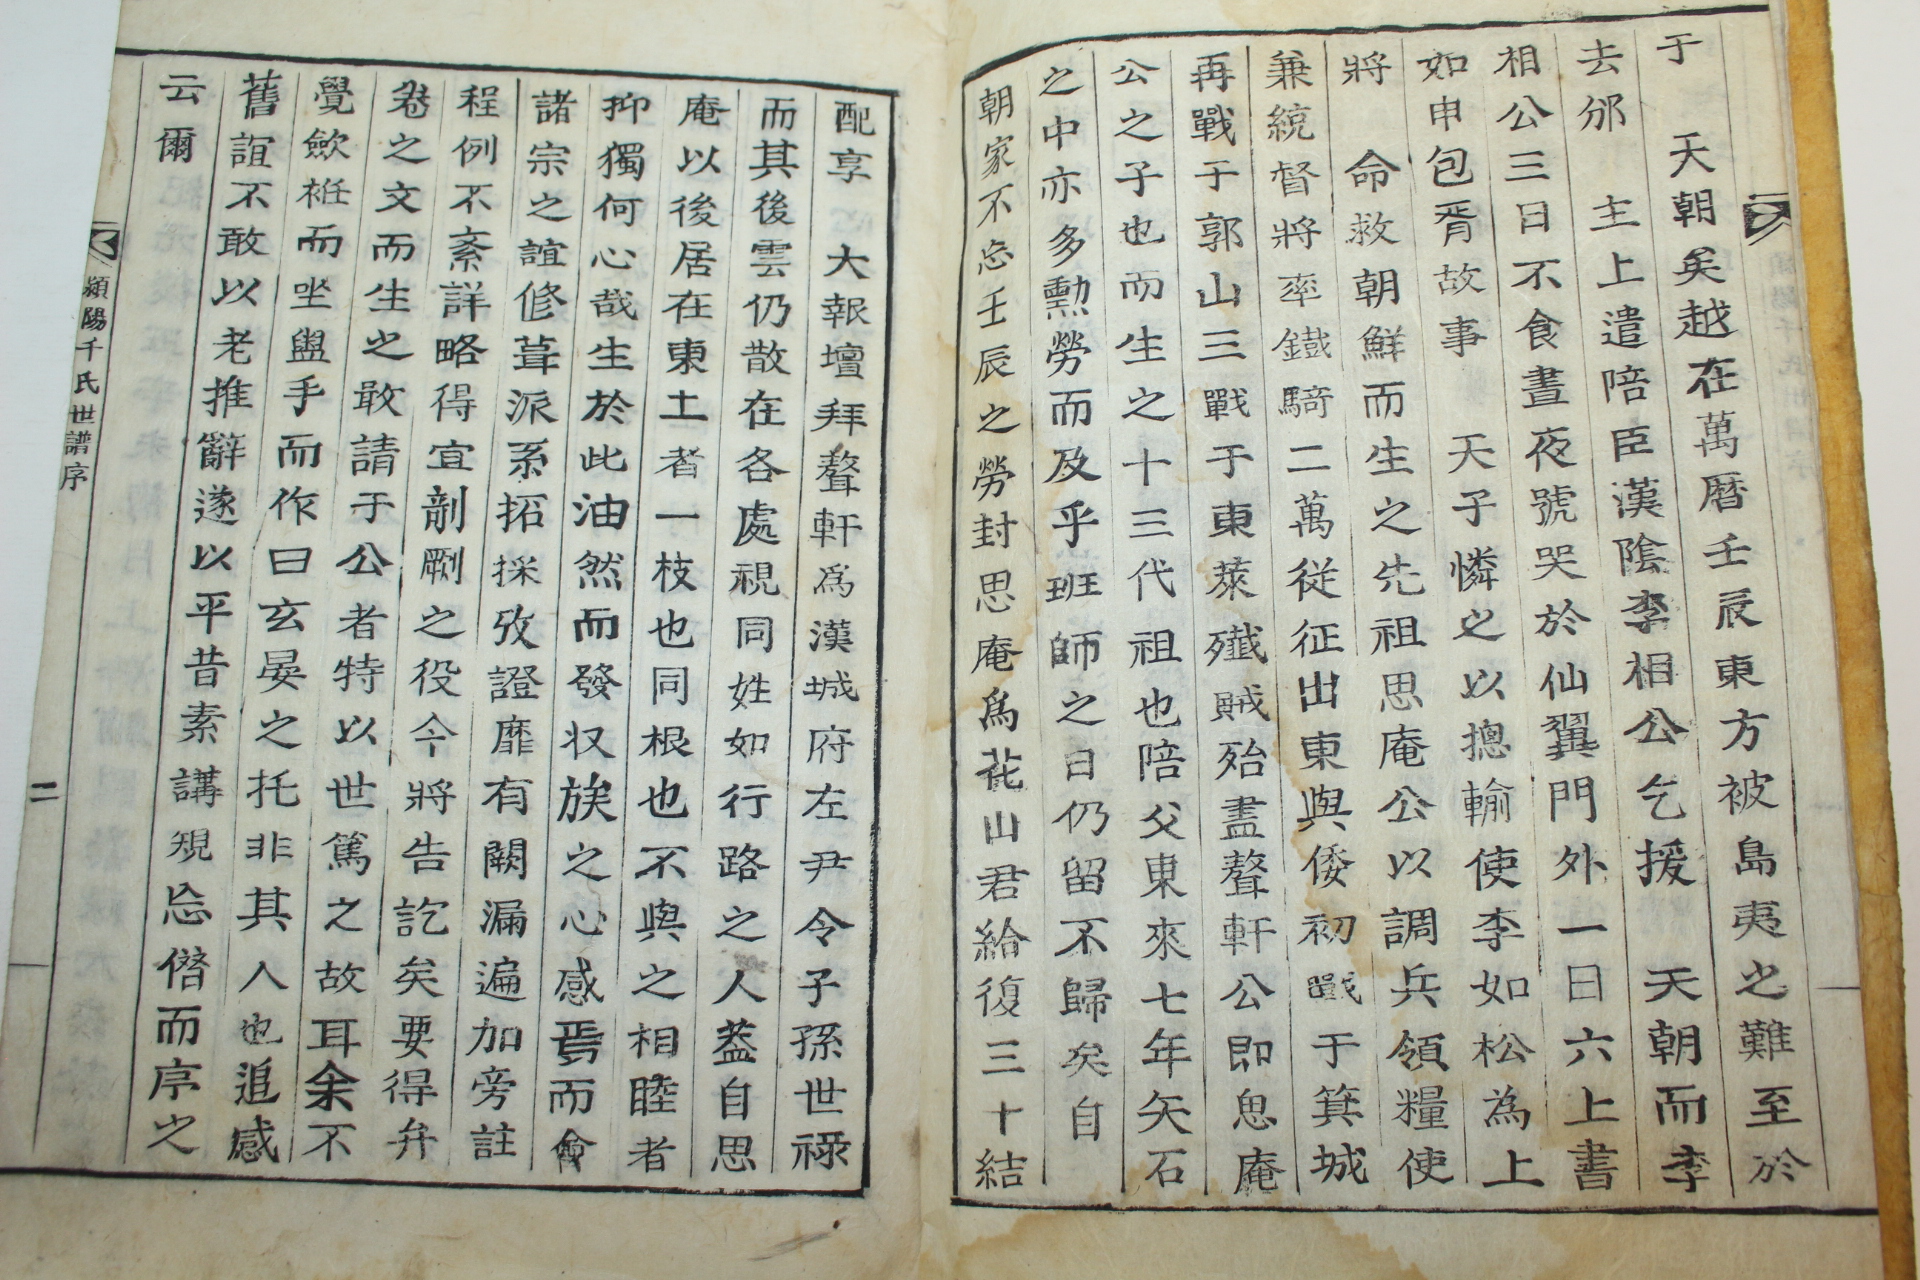 于 天朝矣越在萬曆壬辰東方被島夷之難至於
去邠 主上遣陪臣漢陰李相公乞援 天朝而李
相公三日不食晝夜號哭於仙翼門外一日六上書
如申包胥故事 天子憐之以摠輸使李如松為上
將 命救朝鮮而生之先祖思庵公以調兵領糧使
兼統督將率鐵騎二萬從征出東與倭初戰于箕城
再戰于郭山三戰于東萊殲賊殆盡聱軒公即思庵
公之子也而生之十三代祖也陪父東來七年矢石
之中亦多勲勞而及乎班師之日仍留不歸矣自
朝家不忘壬辰之勞封思庵為花山君給復三十結
配享 大報壇拜聱軒為漢城府左尹令子孫世祿
而其後雲仍散在各處視同姓如行路之人盖自思
庵以後居在東土者一枝也同根也不與之相睦者
抑獨何心哉生於此油然而發収族之心感焉而會
諸宗之誼修葺派系拓採攷證靡有闕漏遍加旁註
程例不紊詳略得宜剞劂之役今將告訖矣要得弁
卷之文而生之敢請于公者特以世篤之故耳余不
覺歛袵而坐盥手而作曰玄晏之托非其人也追感
舊誼不敢以老推辭遂以平昔素講規忘僭而序之
云爾
潁陽千氏世譜序 二